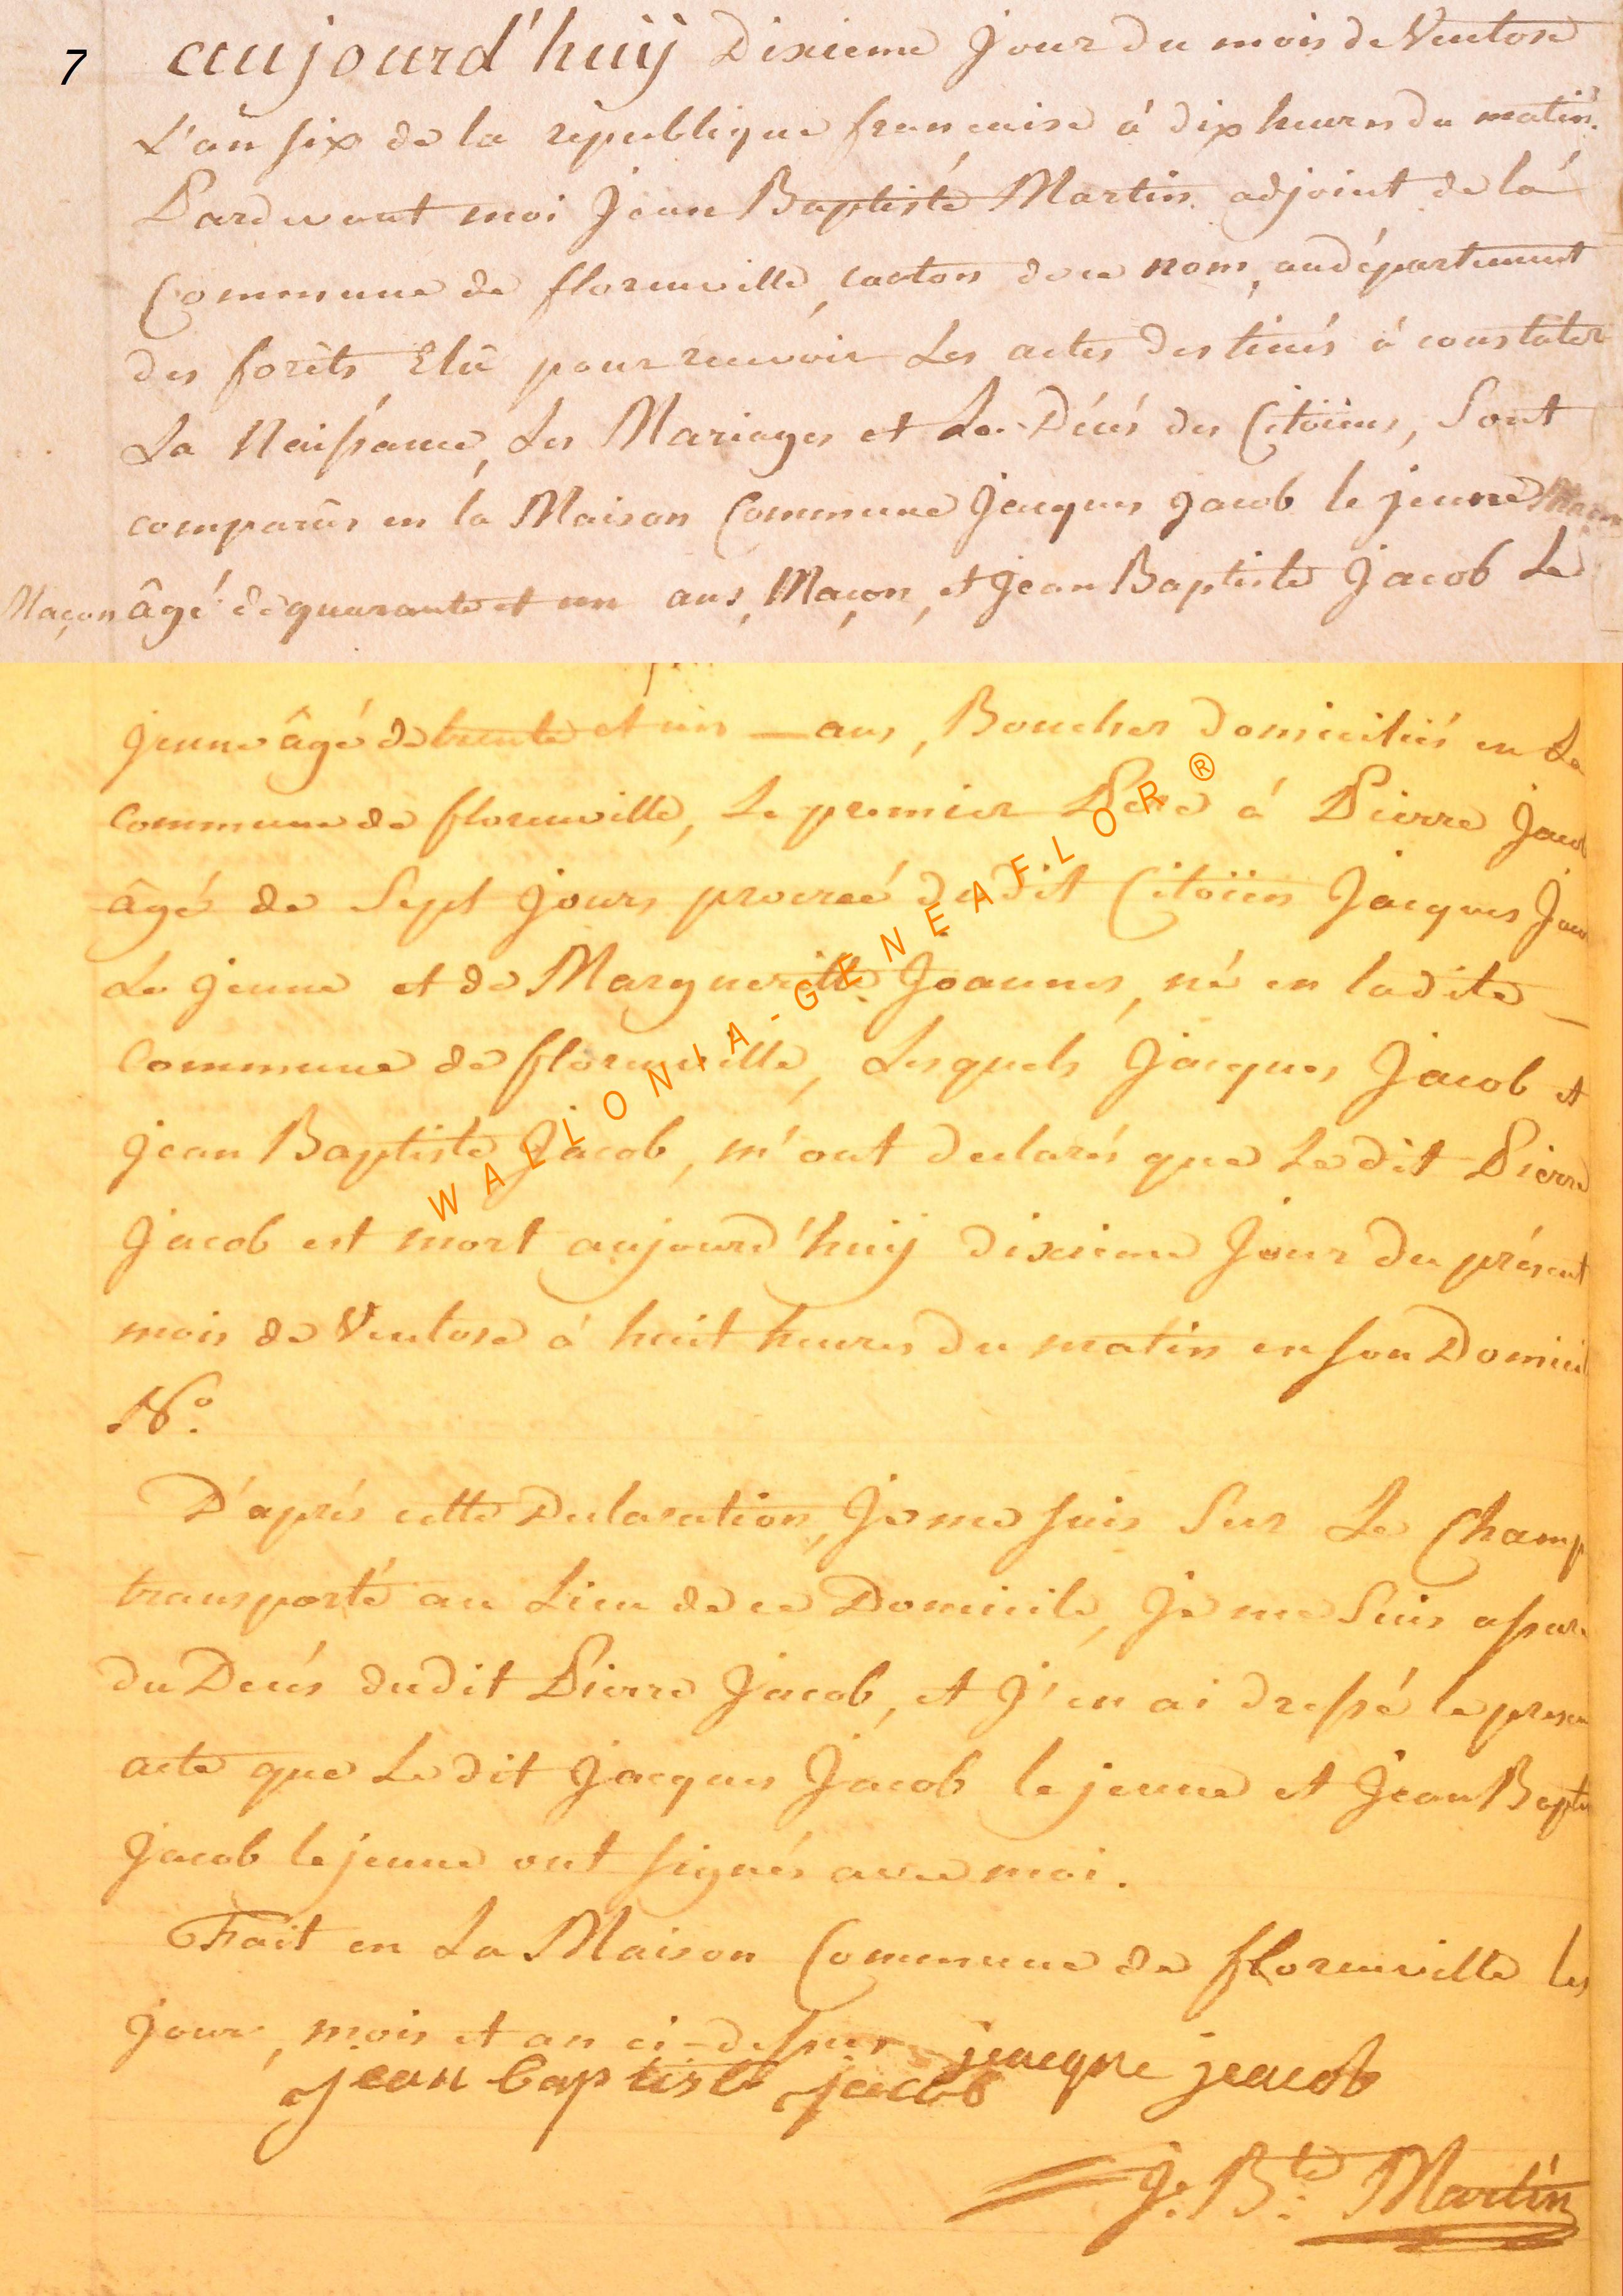 7
aujourd'huÿ Dixieme Jour du mois de Ventose
L'an six de la republique francaise á dix heures du matin.
Pardevant moi Jean Baptiste Martin adjoint de la
Commune de florenville, canton de ce nom, au département
des forêts Elû pour recevoir Les actes destinés á constater
La Naissance, Les Mariages et Le Décés des Citöiens, Sont
comparûs en la Maison Commune Jacques Jacob le jeune
Maçon âgé de quarante et un ans, Maçon, et Jean Baptiste Jacob Le
jeune âgé de trente et un — ans, Boucher Domiciliés en La
commune de florenville, Le premier Pere á Pierre Jacob
âgé de Sept Jours procreé du dit Citöien Jacques Jacob
Le Jeune et de Margueritte Joannes, né en ladite
Commune de florenville, Lesquels Jacques Jacob et
Jean Baptiste Jacob, m'ont declarés que Le dit Pierre
Jacob est mort aujourd'huÿ dixieme Jour du présent
mois de Ventose á huit heures du matin en son Domicil
N.º
D'aprés cette Declaration, Je me suis Sur Le Champ
transporté au Lieu de ce Domicile, Je me Suis assuré
du Decés dudit Pierre Jacob, et J'en ai dressé le present
acte que Le dit Jacques Jacob le jeune et Jean Baptiste
Jacob le jeune ont signés avec moi.
Fait en La Maison Commune de florenville les
Jour, mois et an ci-dessus
jacque jacob
jean baptiste jacob
J: B.te: Martin
WALLONIA-GENEAFLOR®